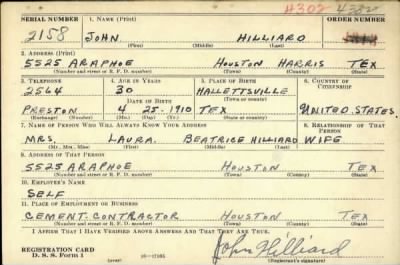 4302 4382
SERIAL NUMBER 1. NAME (Print) ORDER NUMBER
2158 JOHN HILLIARD
(First) (Middle) (Last)
2. ADDRESS (Print)
5525 ARAPHOE HOUSTON HARRIS TEX
(Number and street or R. F. D. number) (Town) (County) (State)
3. TELEPHONE 4. AGE IN YEARS 5. PLACE OF BIRTH 6. COUNTRY OF CITIZENSHIP
2564 30 HALLETTSVILLE
DATE OF BIRTH (Town or county)
PRESTON 4 25 1910 TEX UNITED STATES
(Exchange) (Number) (Mo.) (Day) (Yr.) (State or country)
7. NAME OF PERSON WHO WILL ALWAYS KNOW YOUR ADDRESS 8. RELATIONSHIP OF THAT PERSON
MRS. LAURA BEATRICE HILLIARD WIFE
(Mr., Mrs., Miss) (First) (Middle) (Last)
9. ADDRESS OF THAT PERSON
5525 ARAPHOE HOUSTON TEX
(Number and street or R. F. D. number) (Town) (County) (State)
10. EMPLOYER'S NAME
SELF
11. PLACE OF EMPLOYMENT OR BUSINESS
CEMENT CONTRACTOR HOUSTON TEX
(Number and street or R. F. D. number) (Town) (County) (State)
I AFFIRM THAT I HAVE VERIFIED ABOVE ANSWERS AND THAT THEY ARE TRUE.
REGISTRATION CARD
D. S. S. Form 1 (over) 16—17105
John Hilliard
(Registrant's signature)